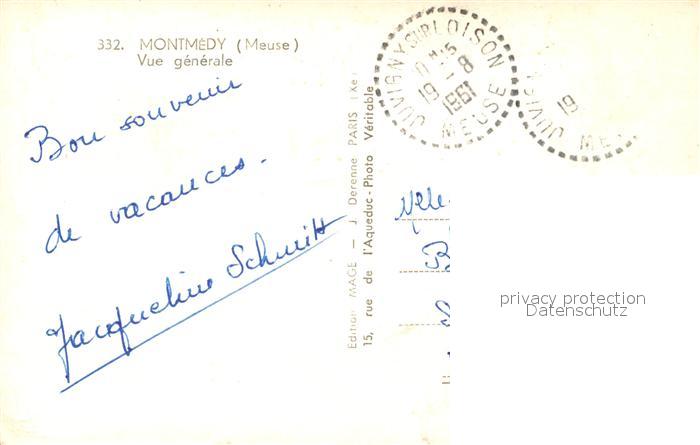 332. MONTMÉDY (Meuse)
Vue générale
Bon souvenir
de vacances.
Jacqueline Schmitt
Edition MAGE — J. Derenne PARIS (Xe)
15, rue de l'Aqueduc - Photo Véritable
JUVIGNY SUR LOISON
19 -8
1961
MEUSE
JUVIG
19
ME
B
privacy protection
Datenschutz